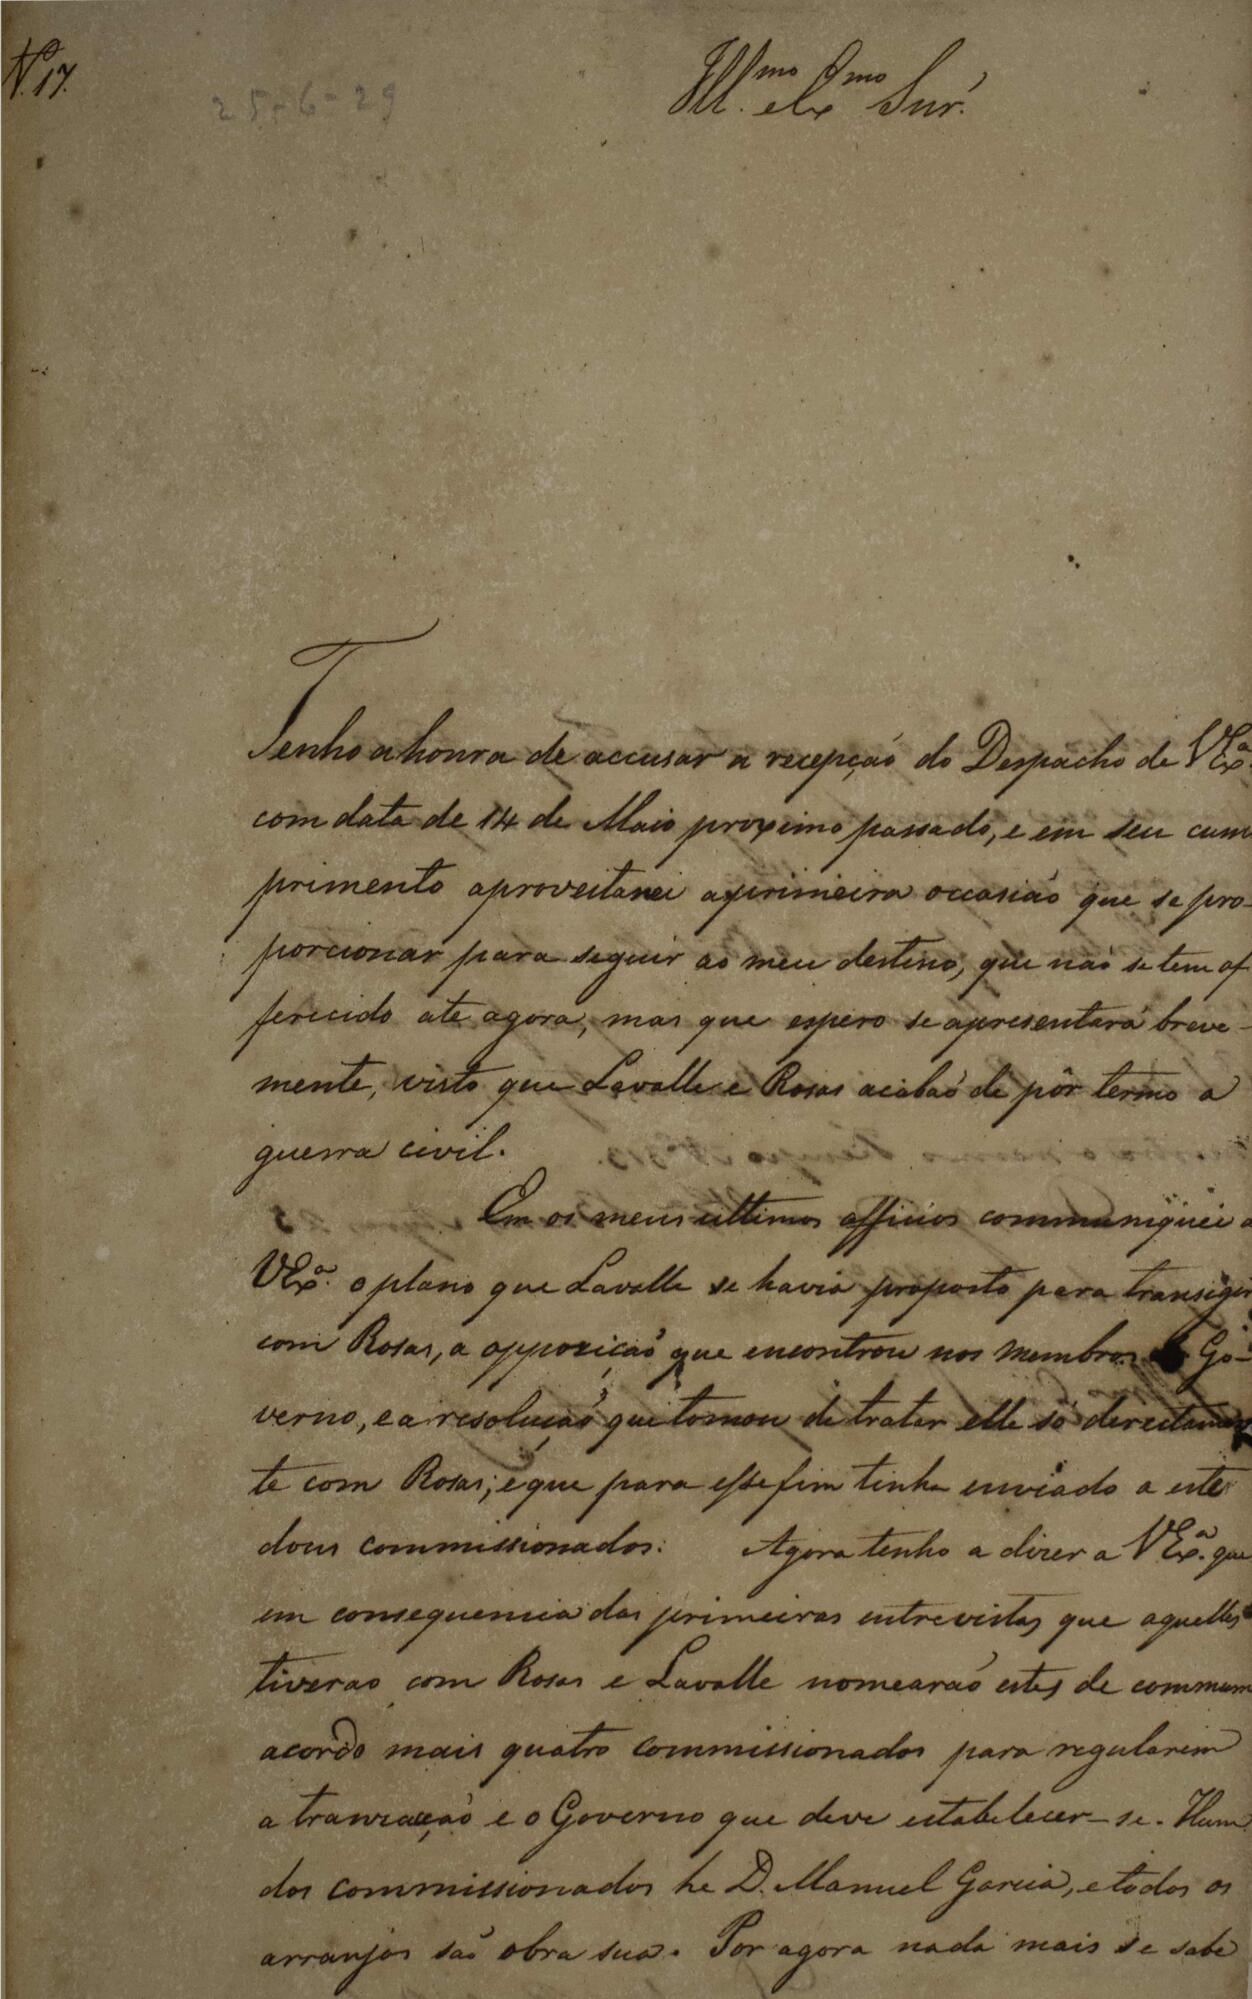 N. 17.
25-6-29
Ill.mo e Ex.mo Snr.
Tenho a honra de accusar a recepção do Despacho de V Ex.ª
com data de 14 de Maio proximo passado, e em seu cum
primento aproveitarei a primeira occasião que se pro-
porcionar para seguir ao meu destino, que não se tem of
ferecido ate agora, mas que espero se apresentará breve-
mente, visto que Lavalle e Rosas acabaõ de pôr termo a
guerra civil.
Em os meus ultimos officios communiquei a
V Ex.ª o plano que Lavalle se havia proposto para transigir
com Rosas, a opposição que encontrou nos membros do Go-
verno, e a resolução que tomou de tratar elle só directamen
te com Rosas; e que para esse fim tinha enviado a este
dous commissionados. Agora tenho a dizer a V Ex.ª que
em consequencia das primeiras entrevistas que aquelles
tiverao com Rosas e Lavalle nomearaõ estes de commum
acordo mais quatro commissionados para regularem
a transacção e o Governo que deve estabelecer-se. Hum
dos commissionados he D. Manuel Garcia, e todos os
arranjos são obra sua. Por agora nada mais se sabe